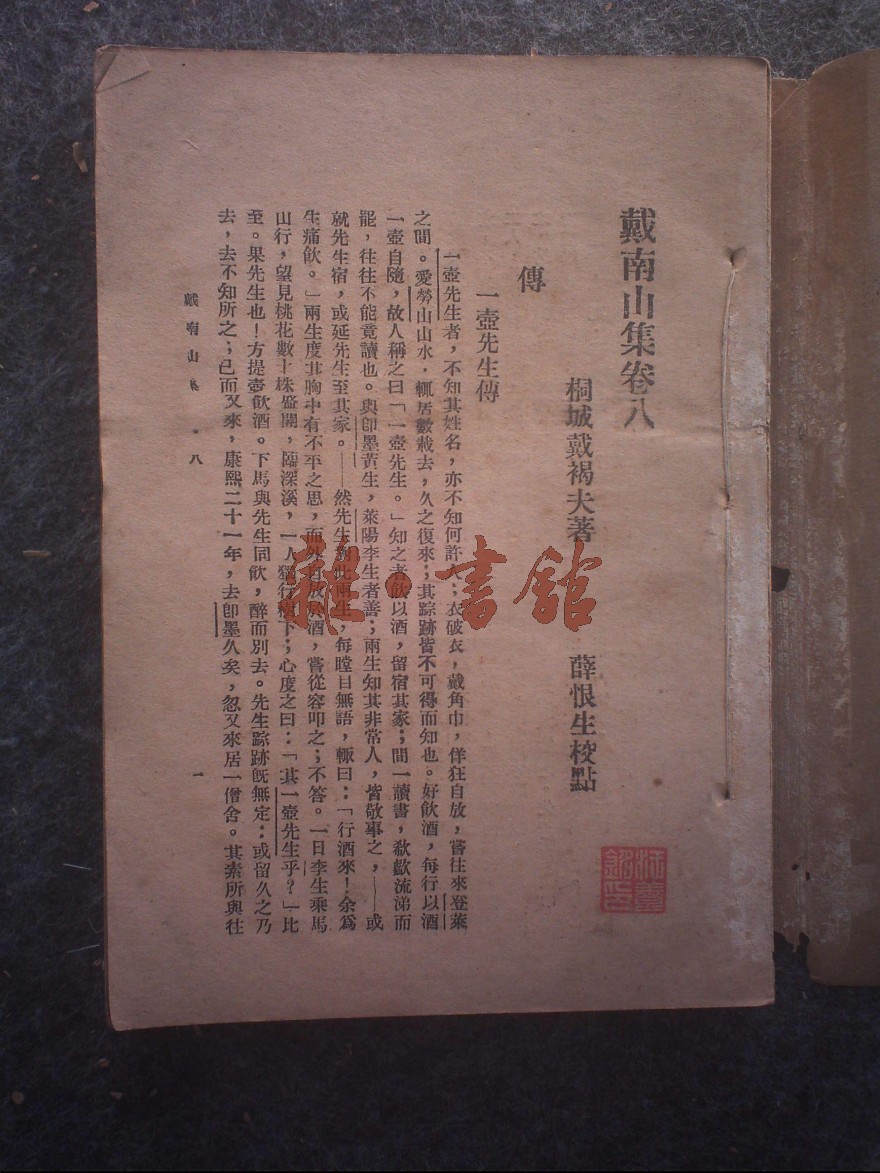 戴南山集卷八
桐城戴褐夫著　薛恨生校點
傳
一壺先生傳
一壺先生者，不知其姓名，亦不知何許人；衣破衣，戴角巾，佯狂自放，嘗往來登萊
之間。愛勞山山水，輒居數載去，久之復來；其踪跡皆不可得而知也。好飲酒，每行以酒
一壺自隨，故人稱之曰「一壺先生。」知之者飲以酒，留宿其家；間一讀書，欷歔流涕而
罷，往往不能竟讀也。與卽墨黃生，萊陽李生者善；兩生知其非常人，皆敬事之，——或
就先生宿，或延先生至其家。——然先生對此兩生，每瞠目無語，輒曰：「行酒來！余爲
生痛飲。」兩生度其胸中有不平之思，而外自放於酒，嘗從容叩之；不答。一日李生乘馬
山行，望見桃花數十株盛開，臨深溪，一人獨行樹下；心度之曰：「其一壺先生乎？」比
至。果先生也！方提壺飲酒。下馬與先生同飲，醉而別去。先生踪跡旣無定：或留久之乃
去，去不知所之；已而又來，康熙二十一年，去卽墨久矣，忽又來居一僧舍。其素所與往
戴南山集　八　一
雜·書館